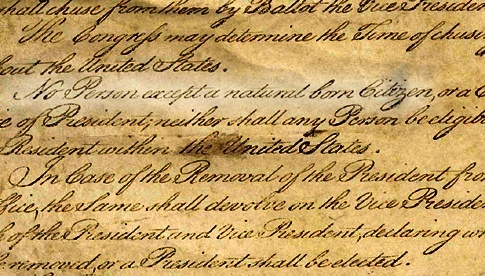 shall chuse from them by Ballot the Vice Presiden
The Congress may determine the Time of chus
out the United States.
No Person except a natural born Citizen, or a C
ce of President; neither shall any Person be eligib
Resident within the United States.
In Case of the Removal of the President fro
ffice, the Same shall devolve on the Vice Preside
of the President and Vice President, declaring w
removed, or a President shall be elected.